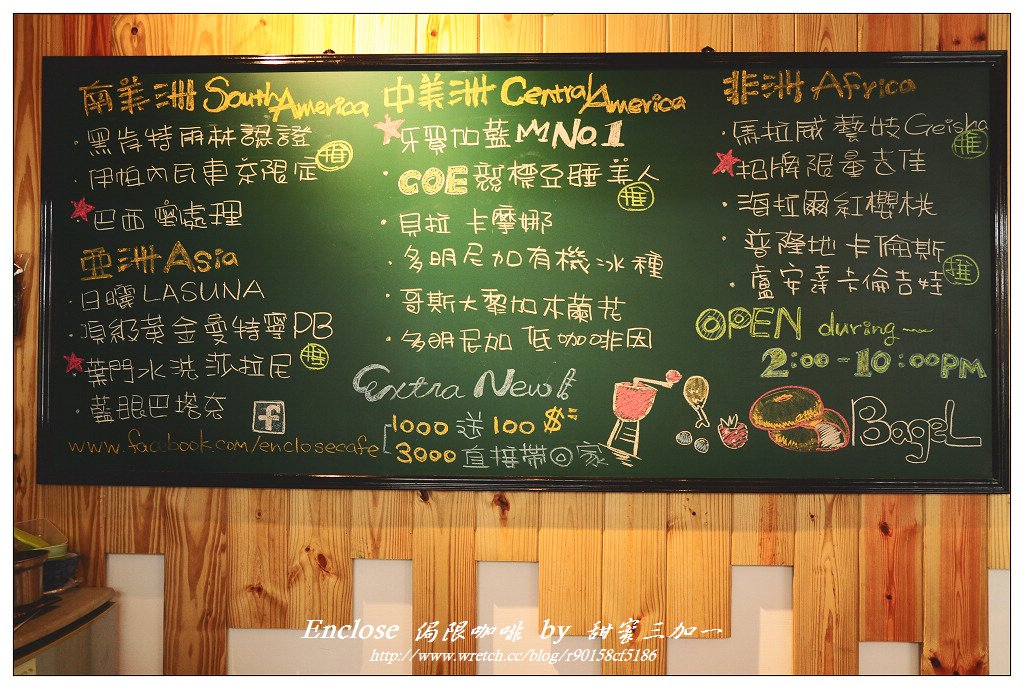 南美洲 South America
·黑肯特雨林認證
·伊帕內瓦車京限定 推
巴西 蜜處理
亞洲 Asia
·日曬LASUNA
·頂級黃金曼特寧PB
葉門水洗莎拉尼 推
·藍眼巴塔克
www.facebook.com/enclosecafe
中美洲 Central America
牙買加藍M No.1
·COE競標豆睡美人 推
·貝拉 卡摩娜
·多明尼加有機冰種
·哥斯大黎加木蘭花
·多明尼加 低咖啡因
extra New!!
1000 送 100 $
3000 直接帶回家
非洲 Africa
·馬拉威 藝妓Geisha 推
招牌限量吉佳
·海拉爾紅櫻桃
·普隆地 卡倫斯
·盧安達卡倫吉娃 推
OPEN during
2:00-10:00PM
Bagel
Enclose 侷限咖啡 by 甜蜜三加一
http://www.wretch.cc/blog/r90158cf5186